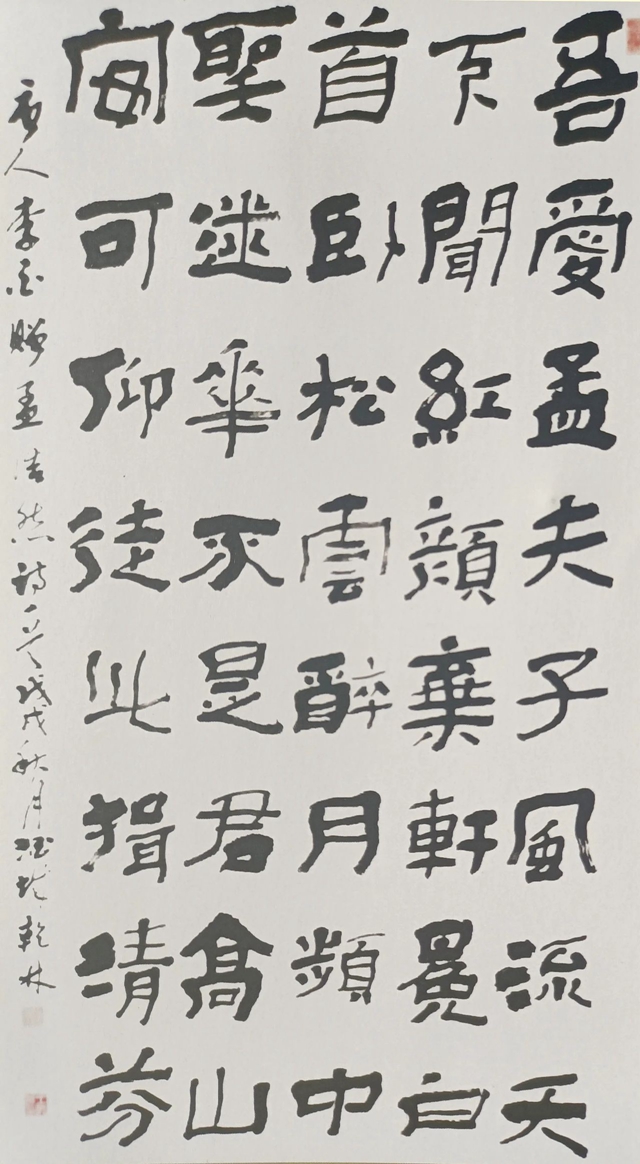 吾愛孟夫子風流天
下聞紅顏棄軒冕白
首臥松雲醉月頻中
聖迷華不是君高山
安可仰徒此揖清芬
唐人李白贈孟浩然詩一首戊戌秋月乾林